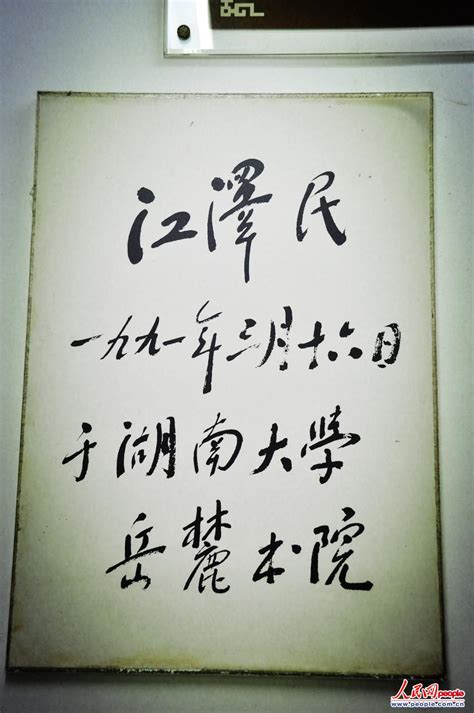 江澤民
一九九一年三月十六日
于湖南大學
岳麓书院
人民网people
www.people.com.cn